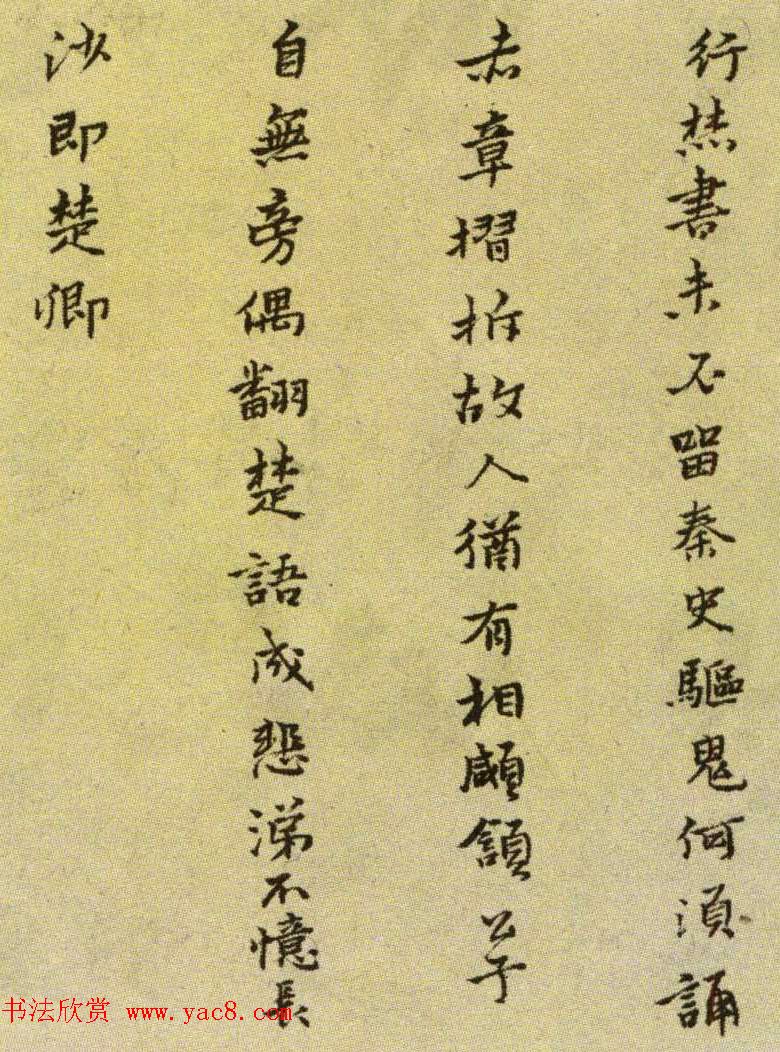 行焚書未不留秦史驅鬼何須誦
赤章摺拆故人猶有相顑頷公子
自無旁偶翻楚語成悲涕不憶長
沙即楚卿
书法欣赏 www.yac8.com